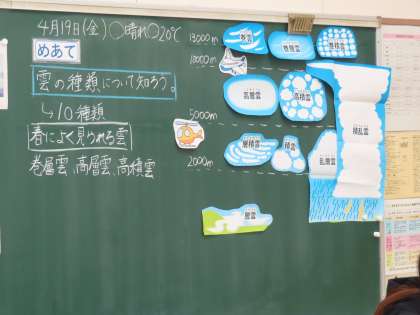 4月19日(金)○晴れ○20℃
めあて
雲の種類について知ろう。
↳10種類
春によく見られる雲
巻層雲、高層雲、高積雲
13000m
10000m
5000m
2000m
巻雲
巻層雲
巻積雲
高層雲
高積雲
積乱雲
層積雲
積雲
乱層雲
層雲